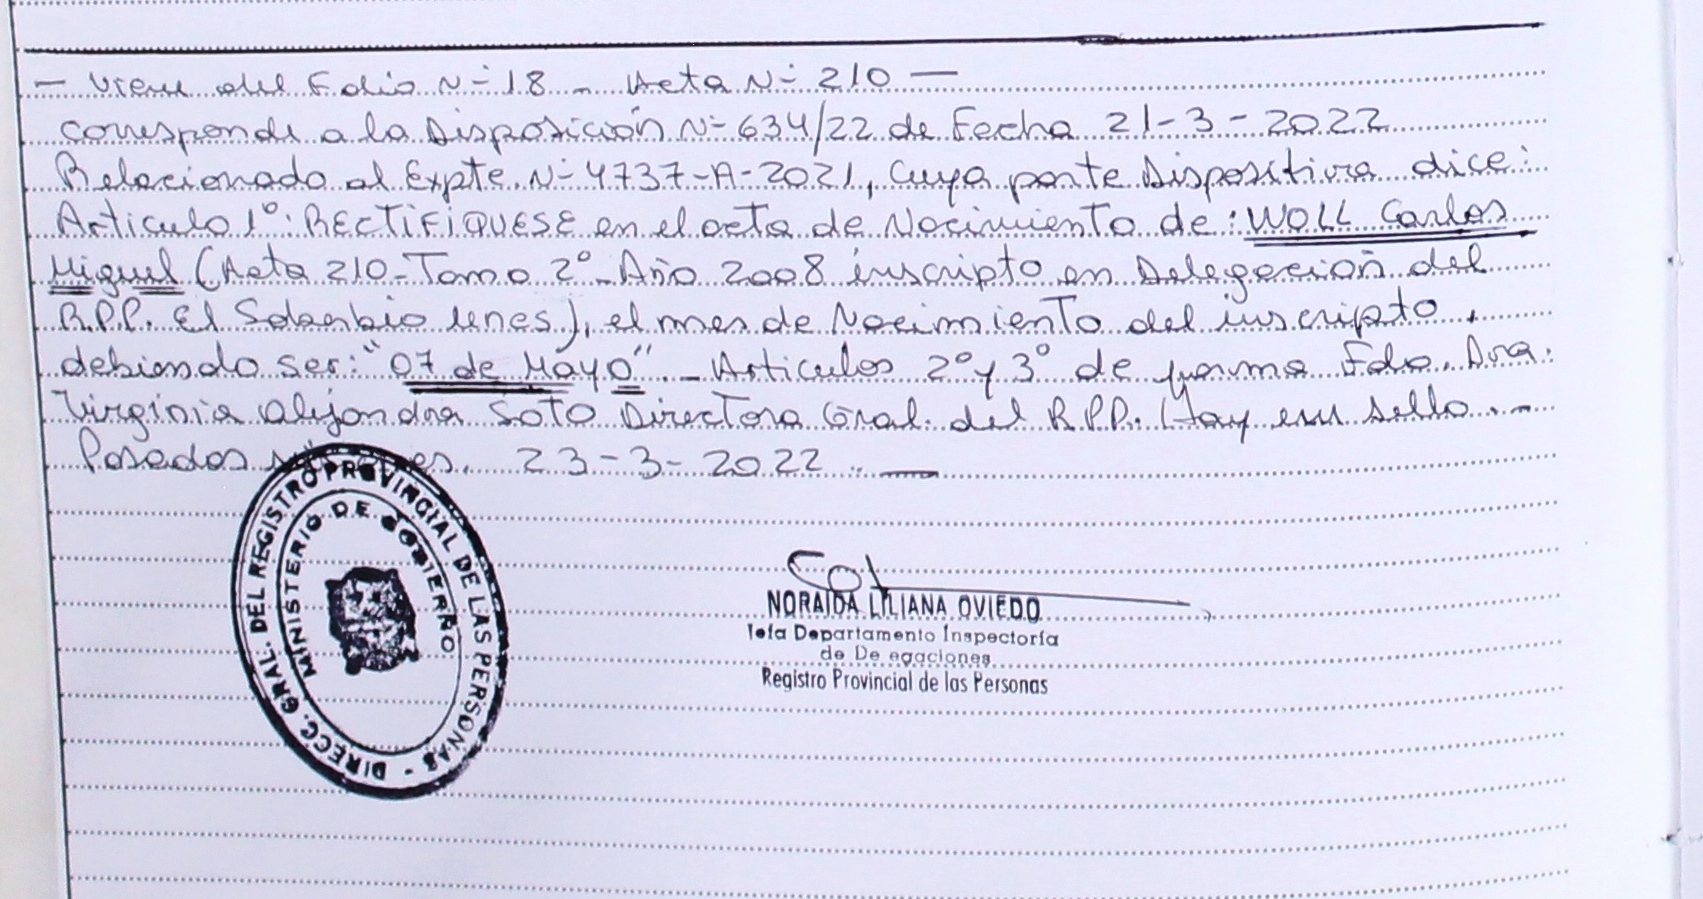 — Viene del Folio N= 18 - Acta N= 210 —
Corresponde a la Disposición N= 634/22 de Fecha 21-3-2022
Relacionado al Expte. N= 4737-A-2021, Cuya parte Dispositiva dice:
Articulo 1º: RECTIFIQUESE en el acta de Nacimiento de: WOLL Carlos
Miguel (Acta 210-Tomo 2º-Año 2008 inscripto en Delegación del
R.P.P. El Soberbio Mnes), el mes de Nacimiento del inscripto,
debiendo ser: "07 de Mayo". - Articulos 2º y 3º de forma Fdo. Dra.
Virginia Alejandra Soto Directora Gral. del R.P.P. Hay un sello.-
Posadas 23-3-2022. —
DIRECC. GRAL. DEL REGISTRO PROVINCIAL DE LAS PERSONAS -
MINISTERIO DE GOBIERNO
NORAIDA LILIANA OVIEDO
Jefa Departamento Inspectoría
de De egaciones
Registro Provincial de las Personas